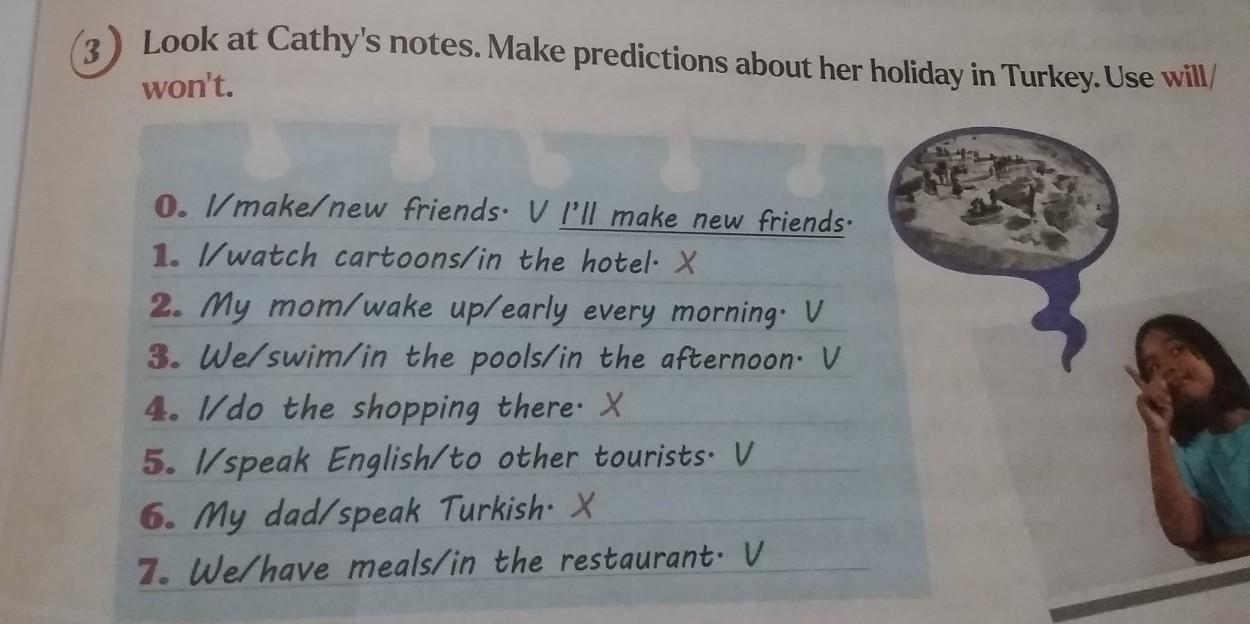 3 Look at Cathy's notes. Make predictions about her holiday in Turkey. Use will/
won't.
0. I/make/new friends. V I'll make new friends.
1. I/watch cartoons/in the hotel. X
2. My mom/wake up/early every morning. V
3. We/swim/in the pools/in the afternoon. V
4. I/do the shopping there. X
5. I/speak English/to other tourists. V
6. My dad/speak Turkish. X
7. We/have meals/in the restaurant. V